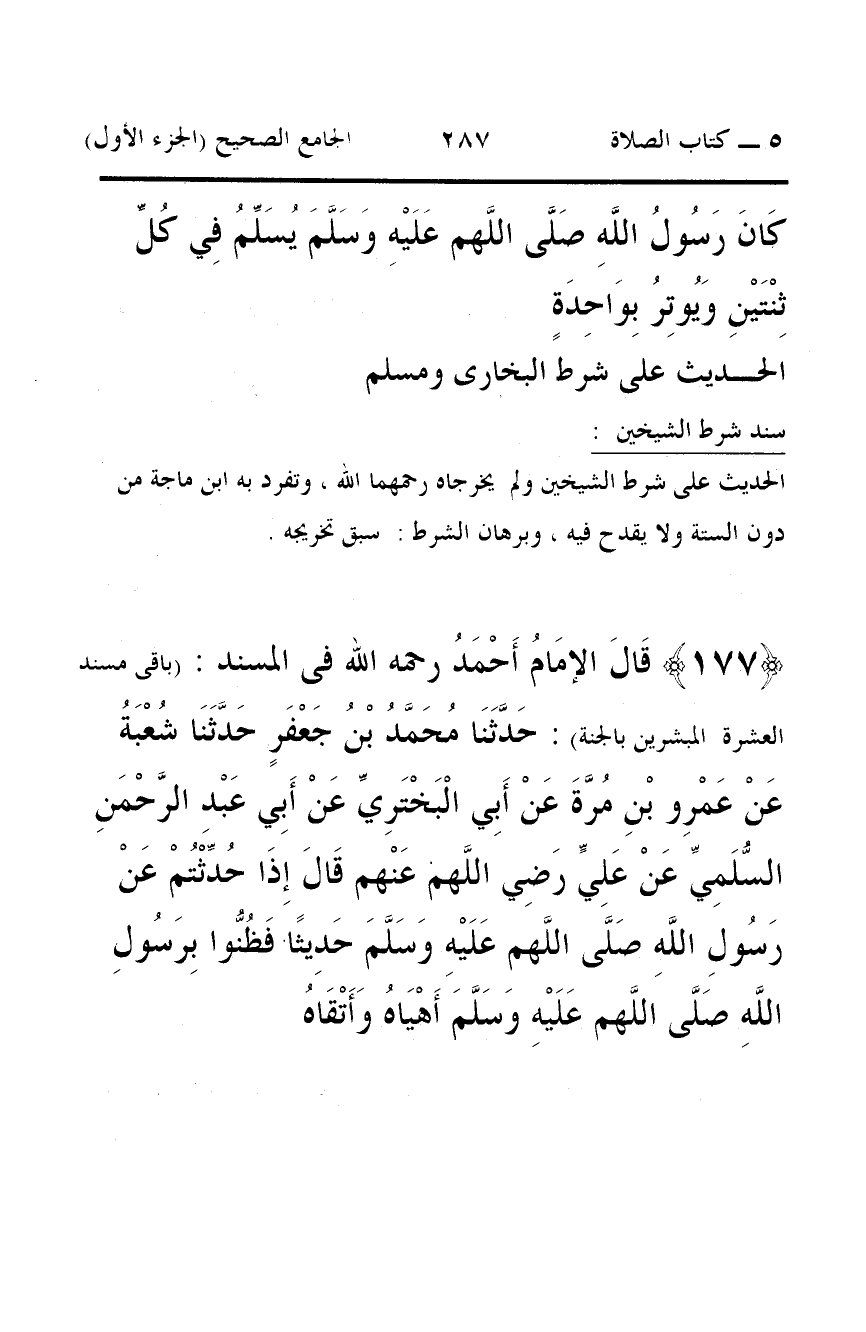 ٥ ــ كتاب الصلاة ٢٨٧ الجامع الصحيح (الجزء الأول)
كَانَ رَسُولُ اللَّهِ صَلَّى اللَّهم عَلَيْهِ وَسَلَّمَ يُسَلِّمُ فِي كُلِّ
ثِنْتَيْنِ وَيُوتِرُ بِوَاحِدَةٍ
الحـــديث على شرط البخارى ومسلم
سند شرط الشيخين :
الحديث على شرط الشيخين ولم يخرجاه رحمهما الله ، وتفرد به ابن ماجة من
دون الستة ولا يقدح فيه ، وبرهان الشرط : سبق تخريجه .
﴿١٧٧﴾ قَالَ الإمَامُ أَحْمَدُ رحمه الله فى المسند : (باقى مسند
العشرة المبشرين بالجنة) : حَدَّثَنَا مُحَمَّدُ بْنُ جَعْفَرٍ حَدَّثَنَا شُعْبَةُ
عَنْ عَمْرِو بْنِ مُرَّةَ عَنْ أَبِي الْبَخْتَرِيِّ عَنْ أَبِي عَبْدِ الرَّحْمَنِ
السُّلَمِيِّ عَنْ عَلِيٍّ رَضِي اللَّهم عَنْهم قَالَ إِذَا حُدِّثْتُمْ عَنْ
رَسُولِ اللَّهِ صَلَّى اللَّهم عَلَيْهِ وَسَلَّمَ حَدِيثًا فَظُنُّوا بِرَسُولِ
اللَّهِ صَلَّى اللَّهم عَلَيْهِ وَسَلَّمَ أَهْيَاهُ وَأَتْقَاهُ